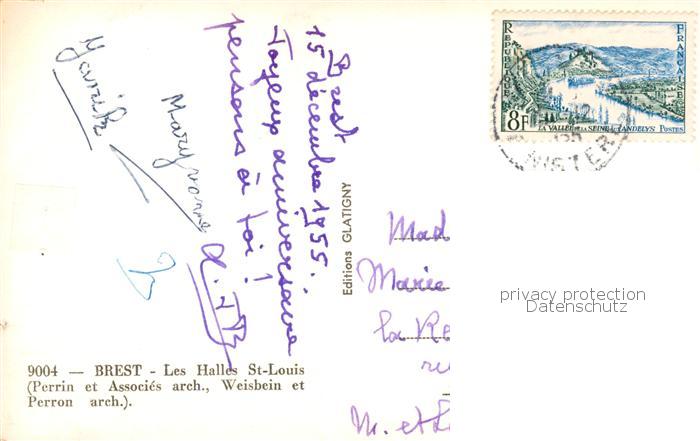 Brest
15 décembre 1955.
Joyeux anniversaire
pensons à toi !
Maryvonne
Editions GLATIGNY
REPUBLIQUE FRANÇAISE
8F
LA VALLÉE DE LA SEINE AUX ANDELYS POSTES
NISTER
Mad
Marie
la Re
ru
M. et L
privacy protection
Datenschutz
9004 — BREST - Les Halles St-Louis
(Perrin et Associés arch., Weisbein et
Perron arch.).